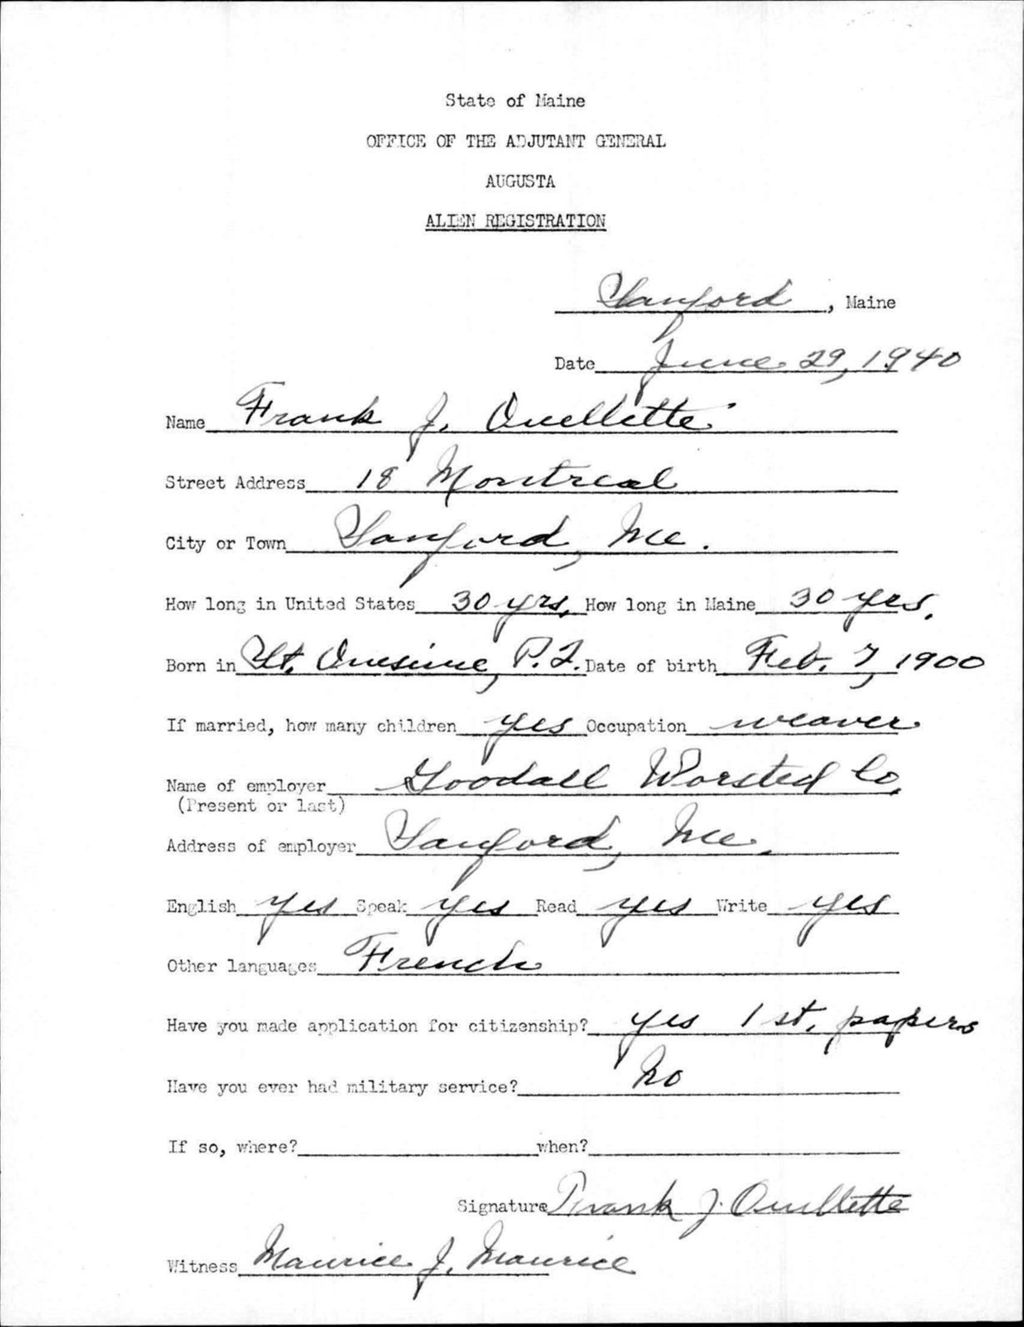 State of Maine
OFFICE OF THE ADJUTANT GENERAL
AUGUSTA
ALIEN REGISTRATION
Sanford, Maine
Date June 29, 1940
Name Frank J. Ouellette
Street Address 18 Montreal
City or Town Sanford, Me.
How long in United States 30 yrs. How long in Maine 30 yrs.
Born in St. Onesime, P.Q. Date of birth Feb. 7, 1900
If married, how many children yes Occupation weaver
Name of employer Goodall Worsted Co.
(Present or last)
Address of employer Sanford, Me.
English yes Speak yes Read yes Write yes
Other languages French
Have you made application for citizenship? yes 1st. papers
Have you ever had military service? No
If so, where? when?
Signature Frank J. Ouellette
Witness Maurice J. Maurice